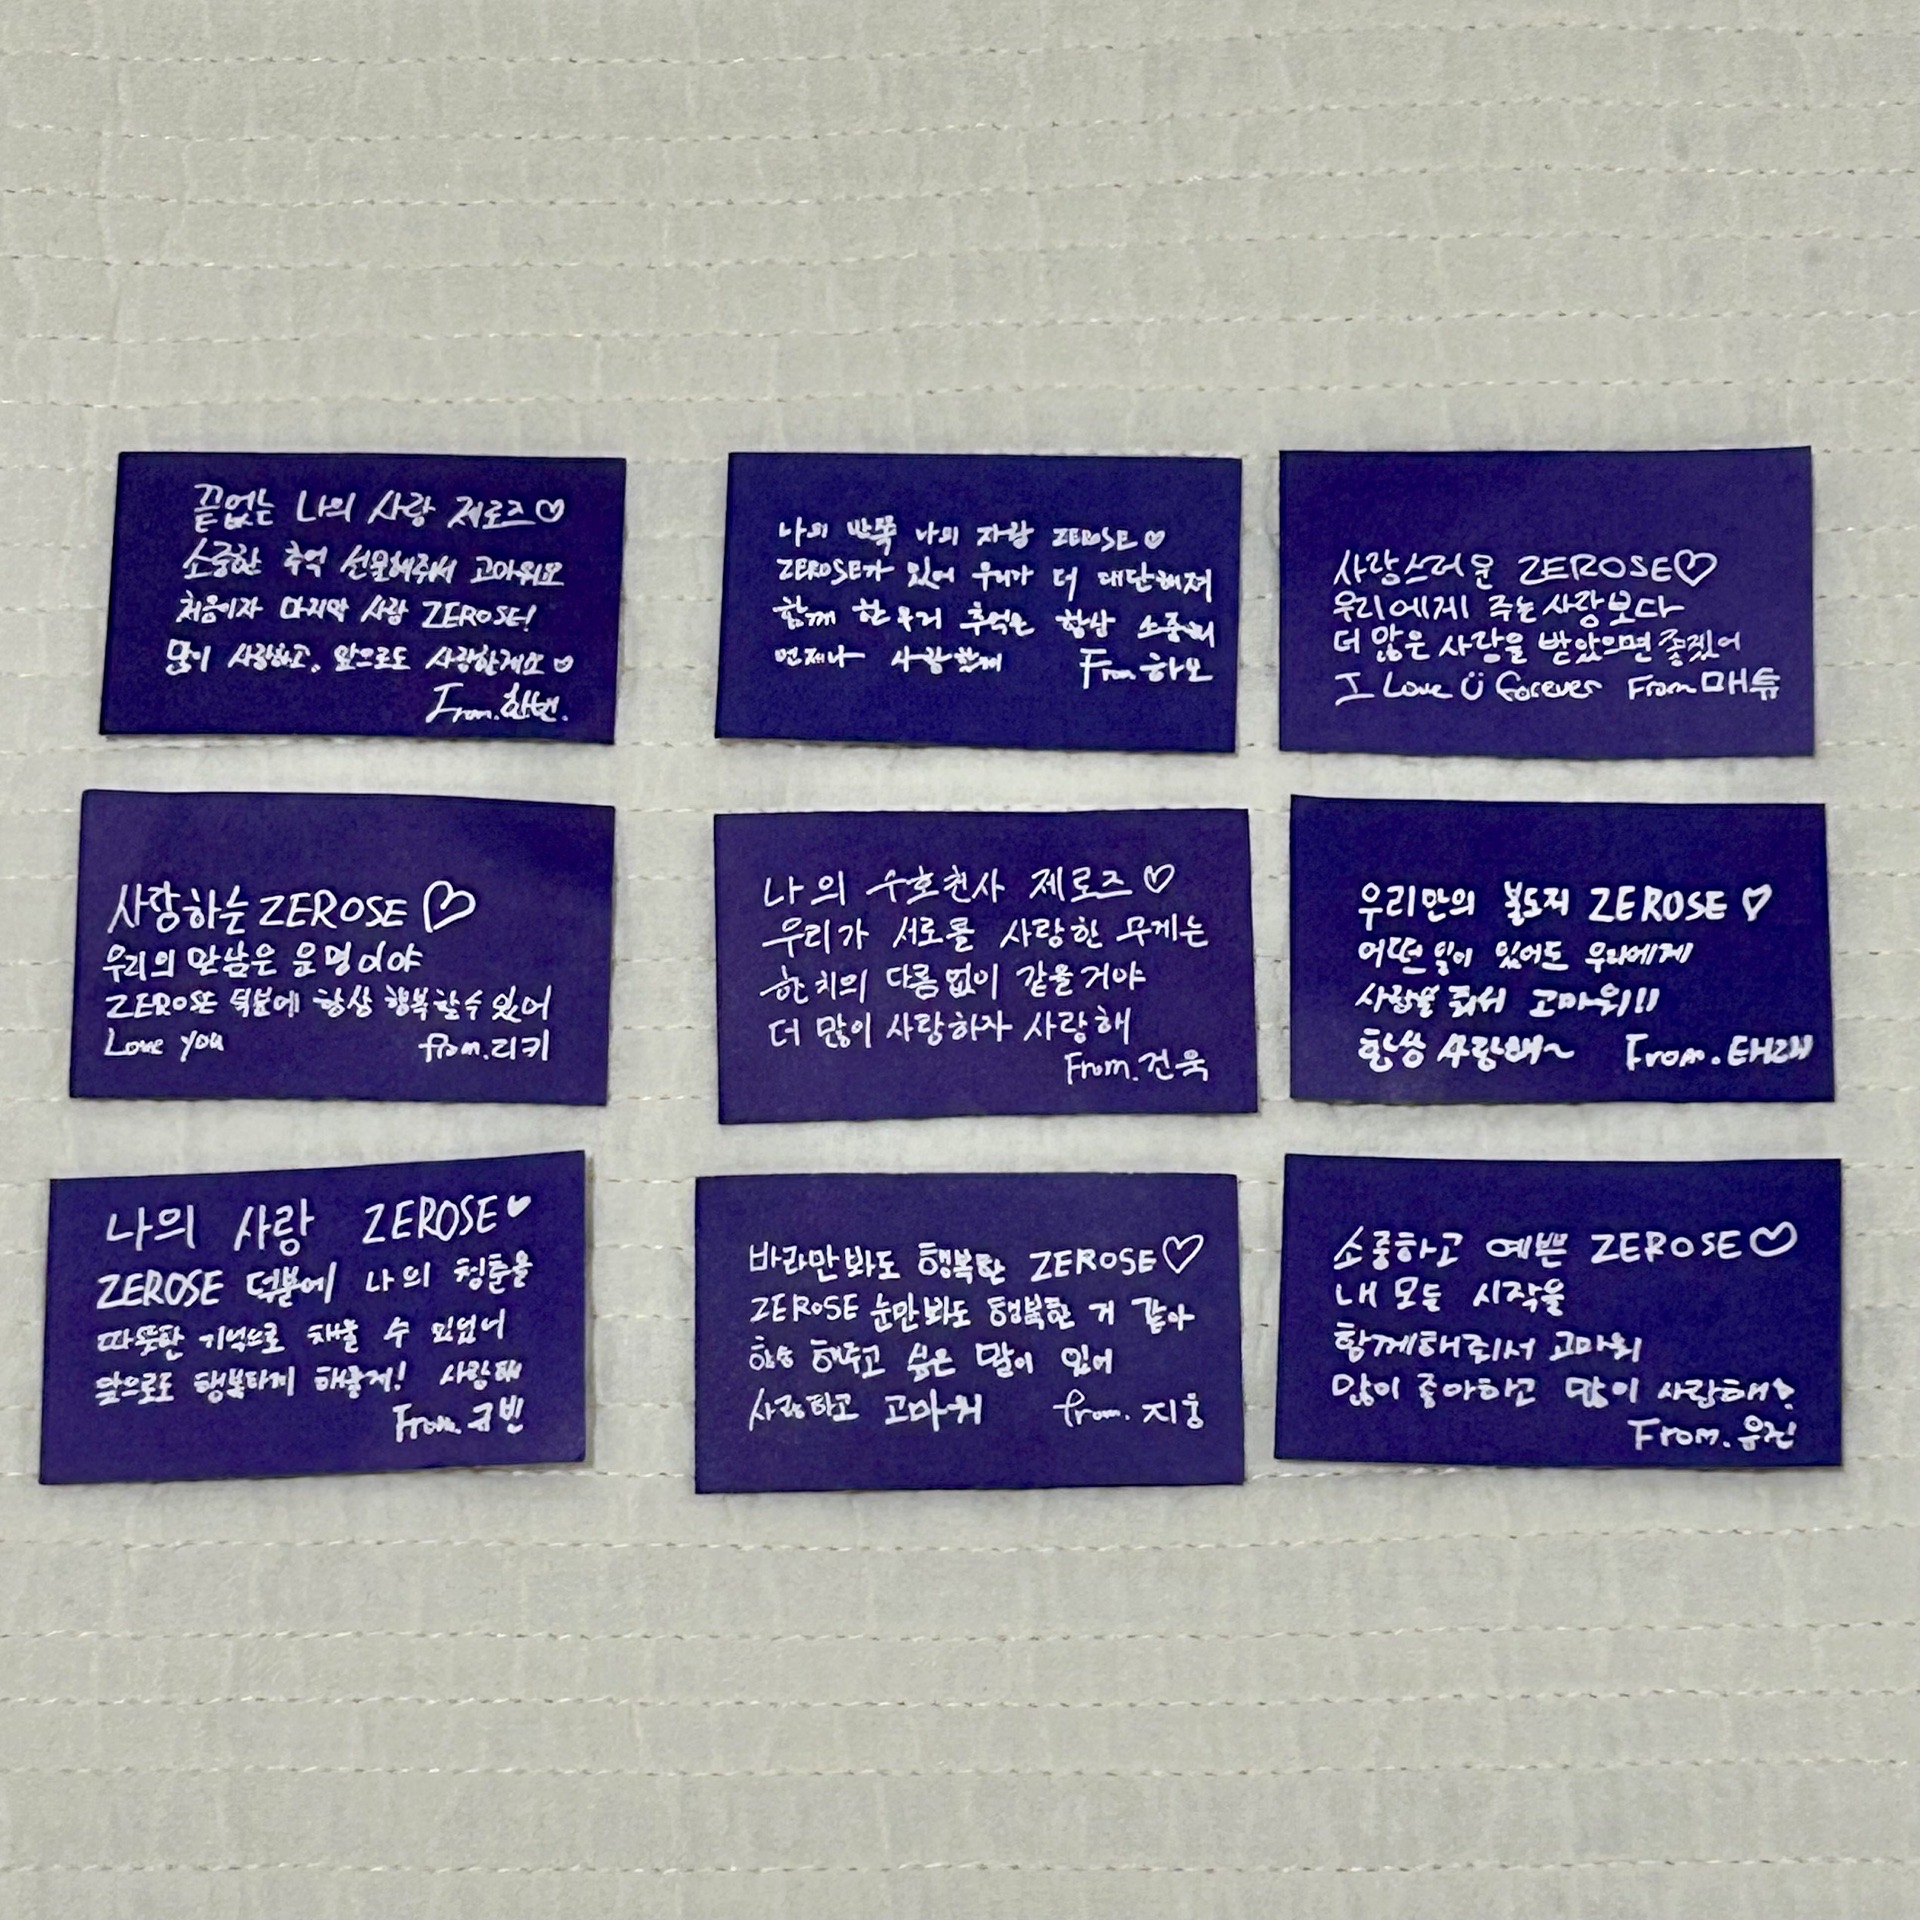 끝없는 나의 사랑 제로즈♡
소중한 추억 선물해줘서 고마워요
처음이자 마지막 사랑 ZEROSE!
많이 사랑하고, 앞으로도 사랑할게요♡
From.한빈.
나의 반쪽 나의 자랑 ZEROSE♡
ZEROSE가 있어 우리가 더 대단해져
함께 한 우리 추억은 항상 소중해
언제나 사랑할게 From 하오
사랑스러운 ZEROSE♡
우리에게 주는 사랑보다
더 많은 사랑을 받았으면 좋겠어
I Love Ü forever From 매튜
사랑하는 ZEROSE♡
우리의 만남은 운명이야
ZEROSE 덕분에 항상 행복할 수 있어
Love you from.리키
나의 수호천사 제로즈♡
우리가 서로를 사랑한 무게는
한 치의 다름없이 같을거야
더 많이 사랑하자 사랑해
From.건욱
우리만의 ZEROSE♡
어떤 일이 있어도 우리에게
사랑을 줘서 고마워!!
항상 사랑해~ From.태래
나의 사랑 ZEROSE♥
ZEROSE 덕분에 나의 청춘을
따뜻한 기억으로 채울 수 있었어
앞으로도 행복하게 해줄게! 사랑해
From.규빈
바라만 봐도 행복한 ZEROSE♡
ZEROSE 눈만 봐도 행복한 거 같아
항상 해주고 싶은 말이 있어
사랑하고 고마워 from.지웅
소중하고 예쁜 ZEROSE♡
내 모든 시작을
함께해줘서 고마워
많이 좋아하고 많이 사랑해
From.유진